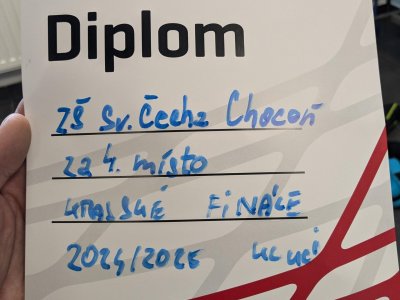 Diplom
ZŠ Sv. Čecha Choceň
za 4. místo
KRAJSKÉ FINÁLE
2024/2025